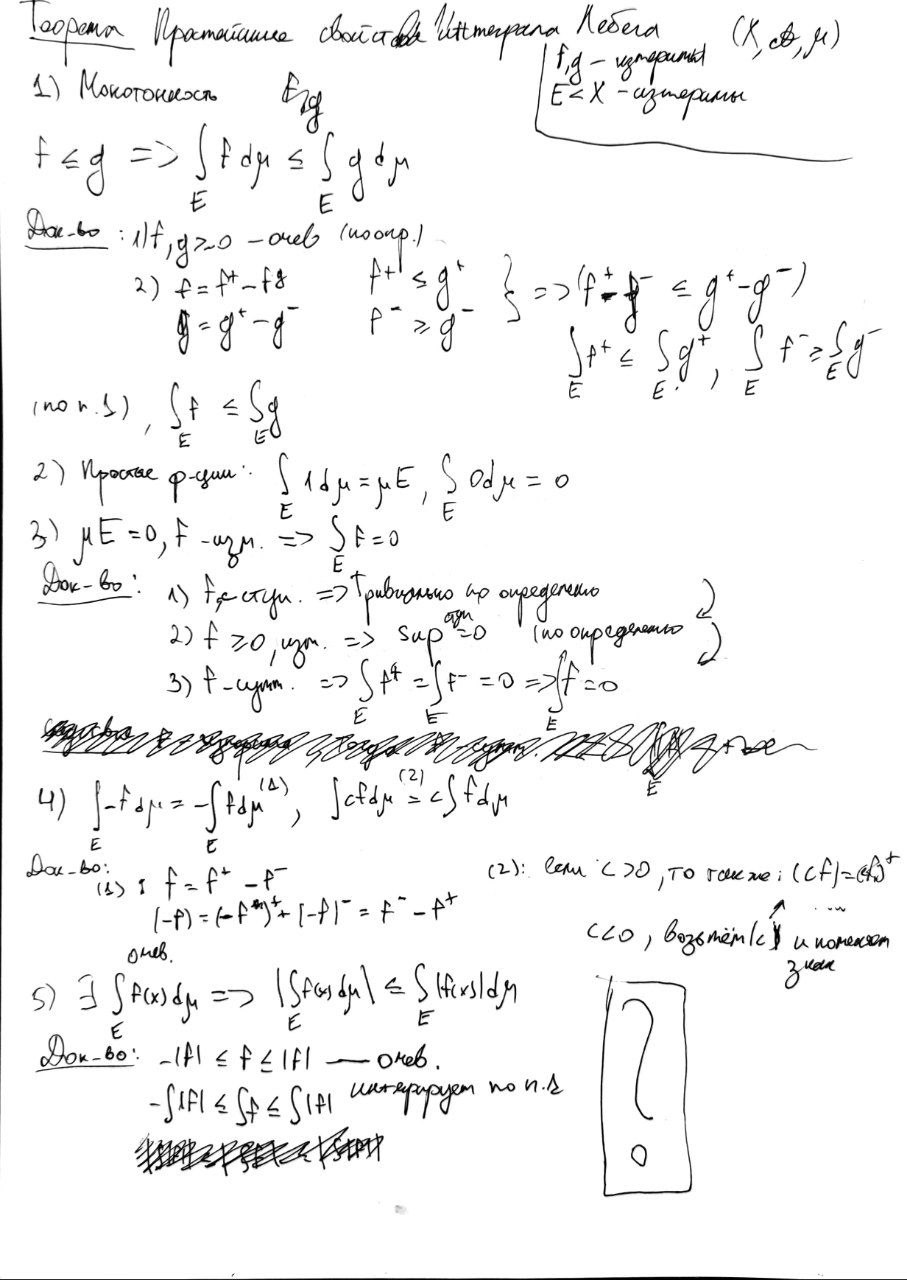 Теорема Простейшие свойства Интеграла Лебега (X, 𝒜, μ)
f, g – измеримы
E ⊂ X – измеримы
1) Монотонность
f ≤ g => ∫_E f dμ ≤ ∫_E g dμ
Док-во: 1) f, g ≥ 0 – очев (по опр.)
2) f = f⁺ – f f⁺ ≤ g⁺ } => (f⁺ - f⁻ ≤ g⁺ - g⁻)
g = g⁺ – g⁻ f⁻ ≥ g⁻
∫_E f⁺ ≤ ∫_E g⁺, ∫_E f⁻ ≥ ∫_E g⁻
(по п. 1), ∫_E f ≤ ∫_E g
2) Простые ф-ции: ∫_E 1 dμ = μE, ∫_E 0 dμ = 0
3) μE = 0, f – изм. => ∫_E f = 0
Док-во: 1) f – ступ. => Тривиально по определению
2) f ≥ 0, изм. => sup = 0 (по определению
3) f – сумм. => ∫_E f⁺ = ∫_E f⁻ = 0 => ∫_E f = 0
4) ∫_E -f dμ = -∫_E f dμ (1), ∫ cf dμ (2)= c∫ f dμ
Док-во:
(1): f = f⁺ – f⁻
(-f) = (-f)⁺ + (-f)⁻ = f⁻ – f⁺
очев.
(2): если c > 0, то также: (cf) = (cf)⁺
...
c < 0, возьмём |c| и поменяет
знак
5) ∃ ∫_E f(x) dμ => |∫_E f(x) dμ| ≤ ∫_E |f(x)| dμ
Док-во: -|f| ≤ f ≤ |f| — очев.
-∫|f| ≤ ∫f ≤ ∫|f| интегрирует по п. 1
?